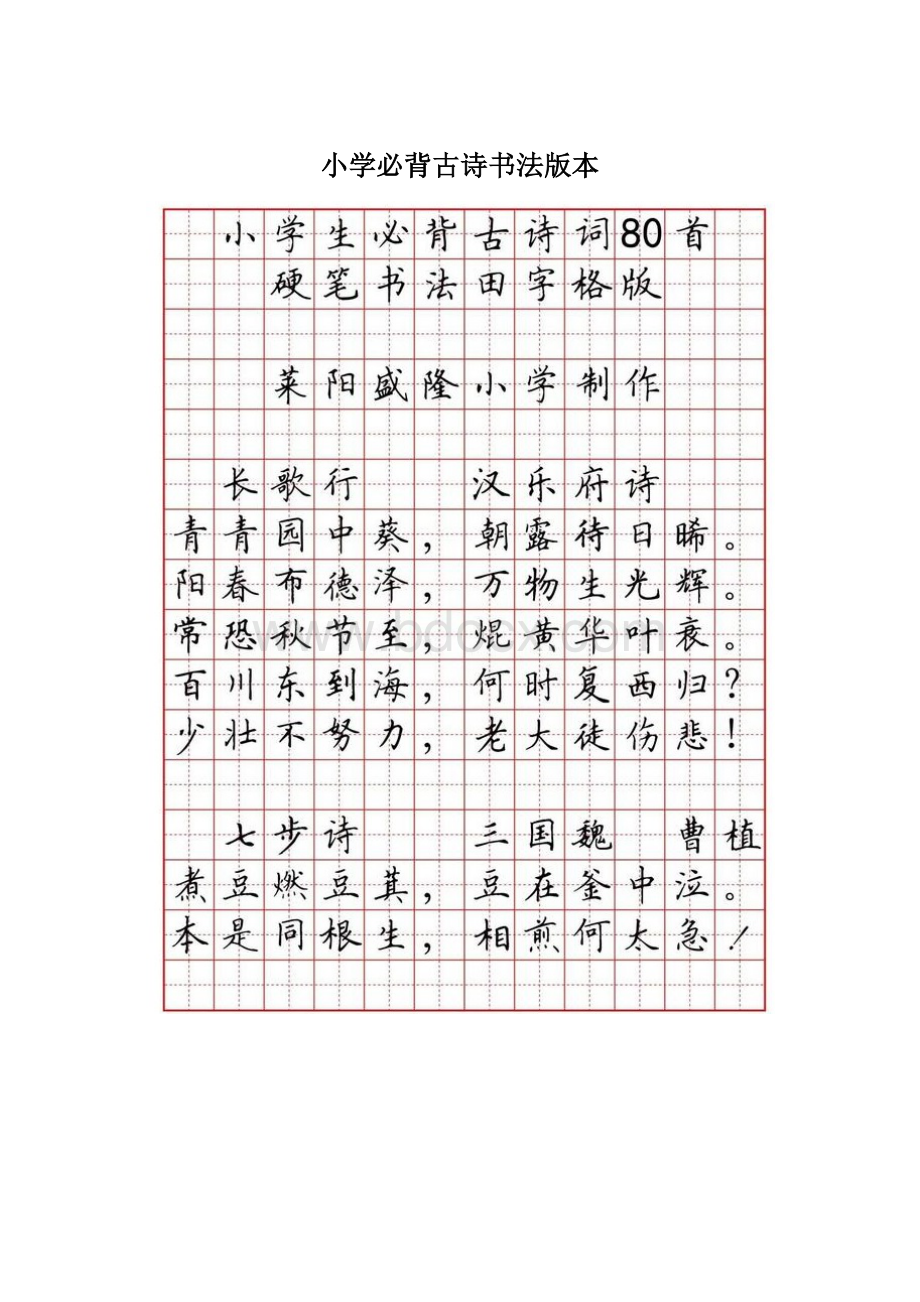 小学必背古诗书法版本
小学生必背古诗词80首
硬笔书法田字格版
莱阳盛隆小学制作
长歌行 汉乐府诗
青青园中葵，朝露待日晞。
阳春布德泽，万物生光辉。
常恐秋节至，焜黄华叶衰。
百川东到海，何时复西归？
少壮不努力，老大徒伤悲！
七步诗 三国魏 曹植
煮豆燃豆萁，豆在釜中泣。
本是同根生，相煎何太急！
www.bdocx.com